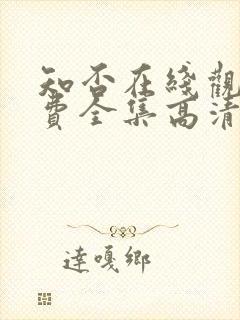 知否在綫觀
費全集高清
達嘎鄉